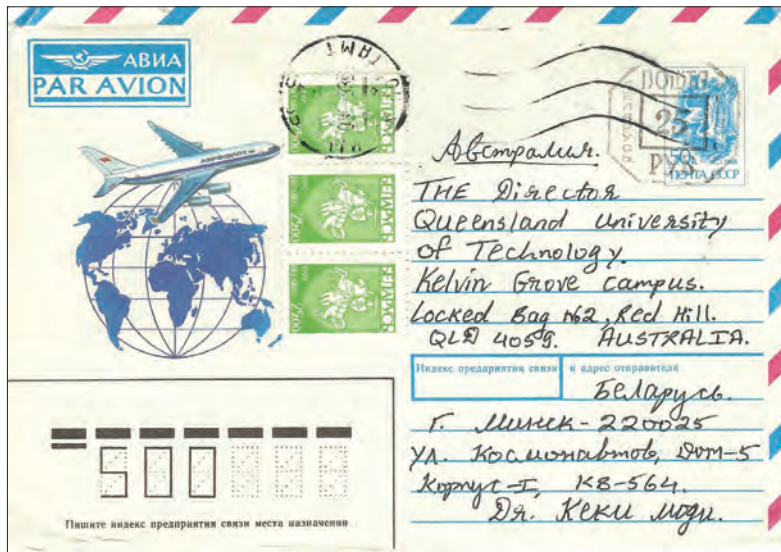 АВИА
PAR AVION
АЭРОФЛОТ
ПОШТА
25
РУБ
50
ПОЧТА СССР
Австралия.
THE Director
Queensland University
of Technology.
Kelvin Grove Campus.
Locked Bag №2, Red Hill.
QLD 4059. AUSTRALIA.
Индекс предприятия связи и адрес отправителя
Беларусь.
г. Минск - 220025
ул. Космонавтов, дом-5
Корпус-I, КВ-564.
Др. Кеки моди.
500
Пишите индекс предприятия связи места назначения